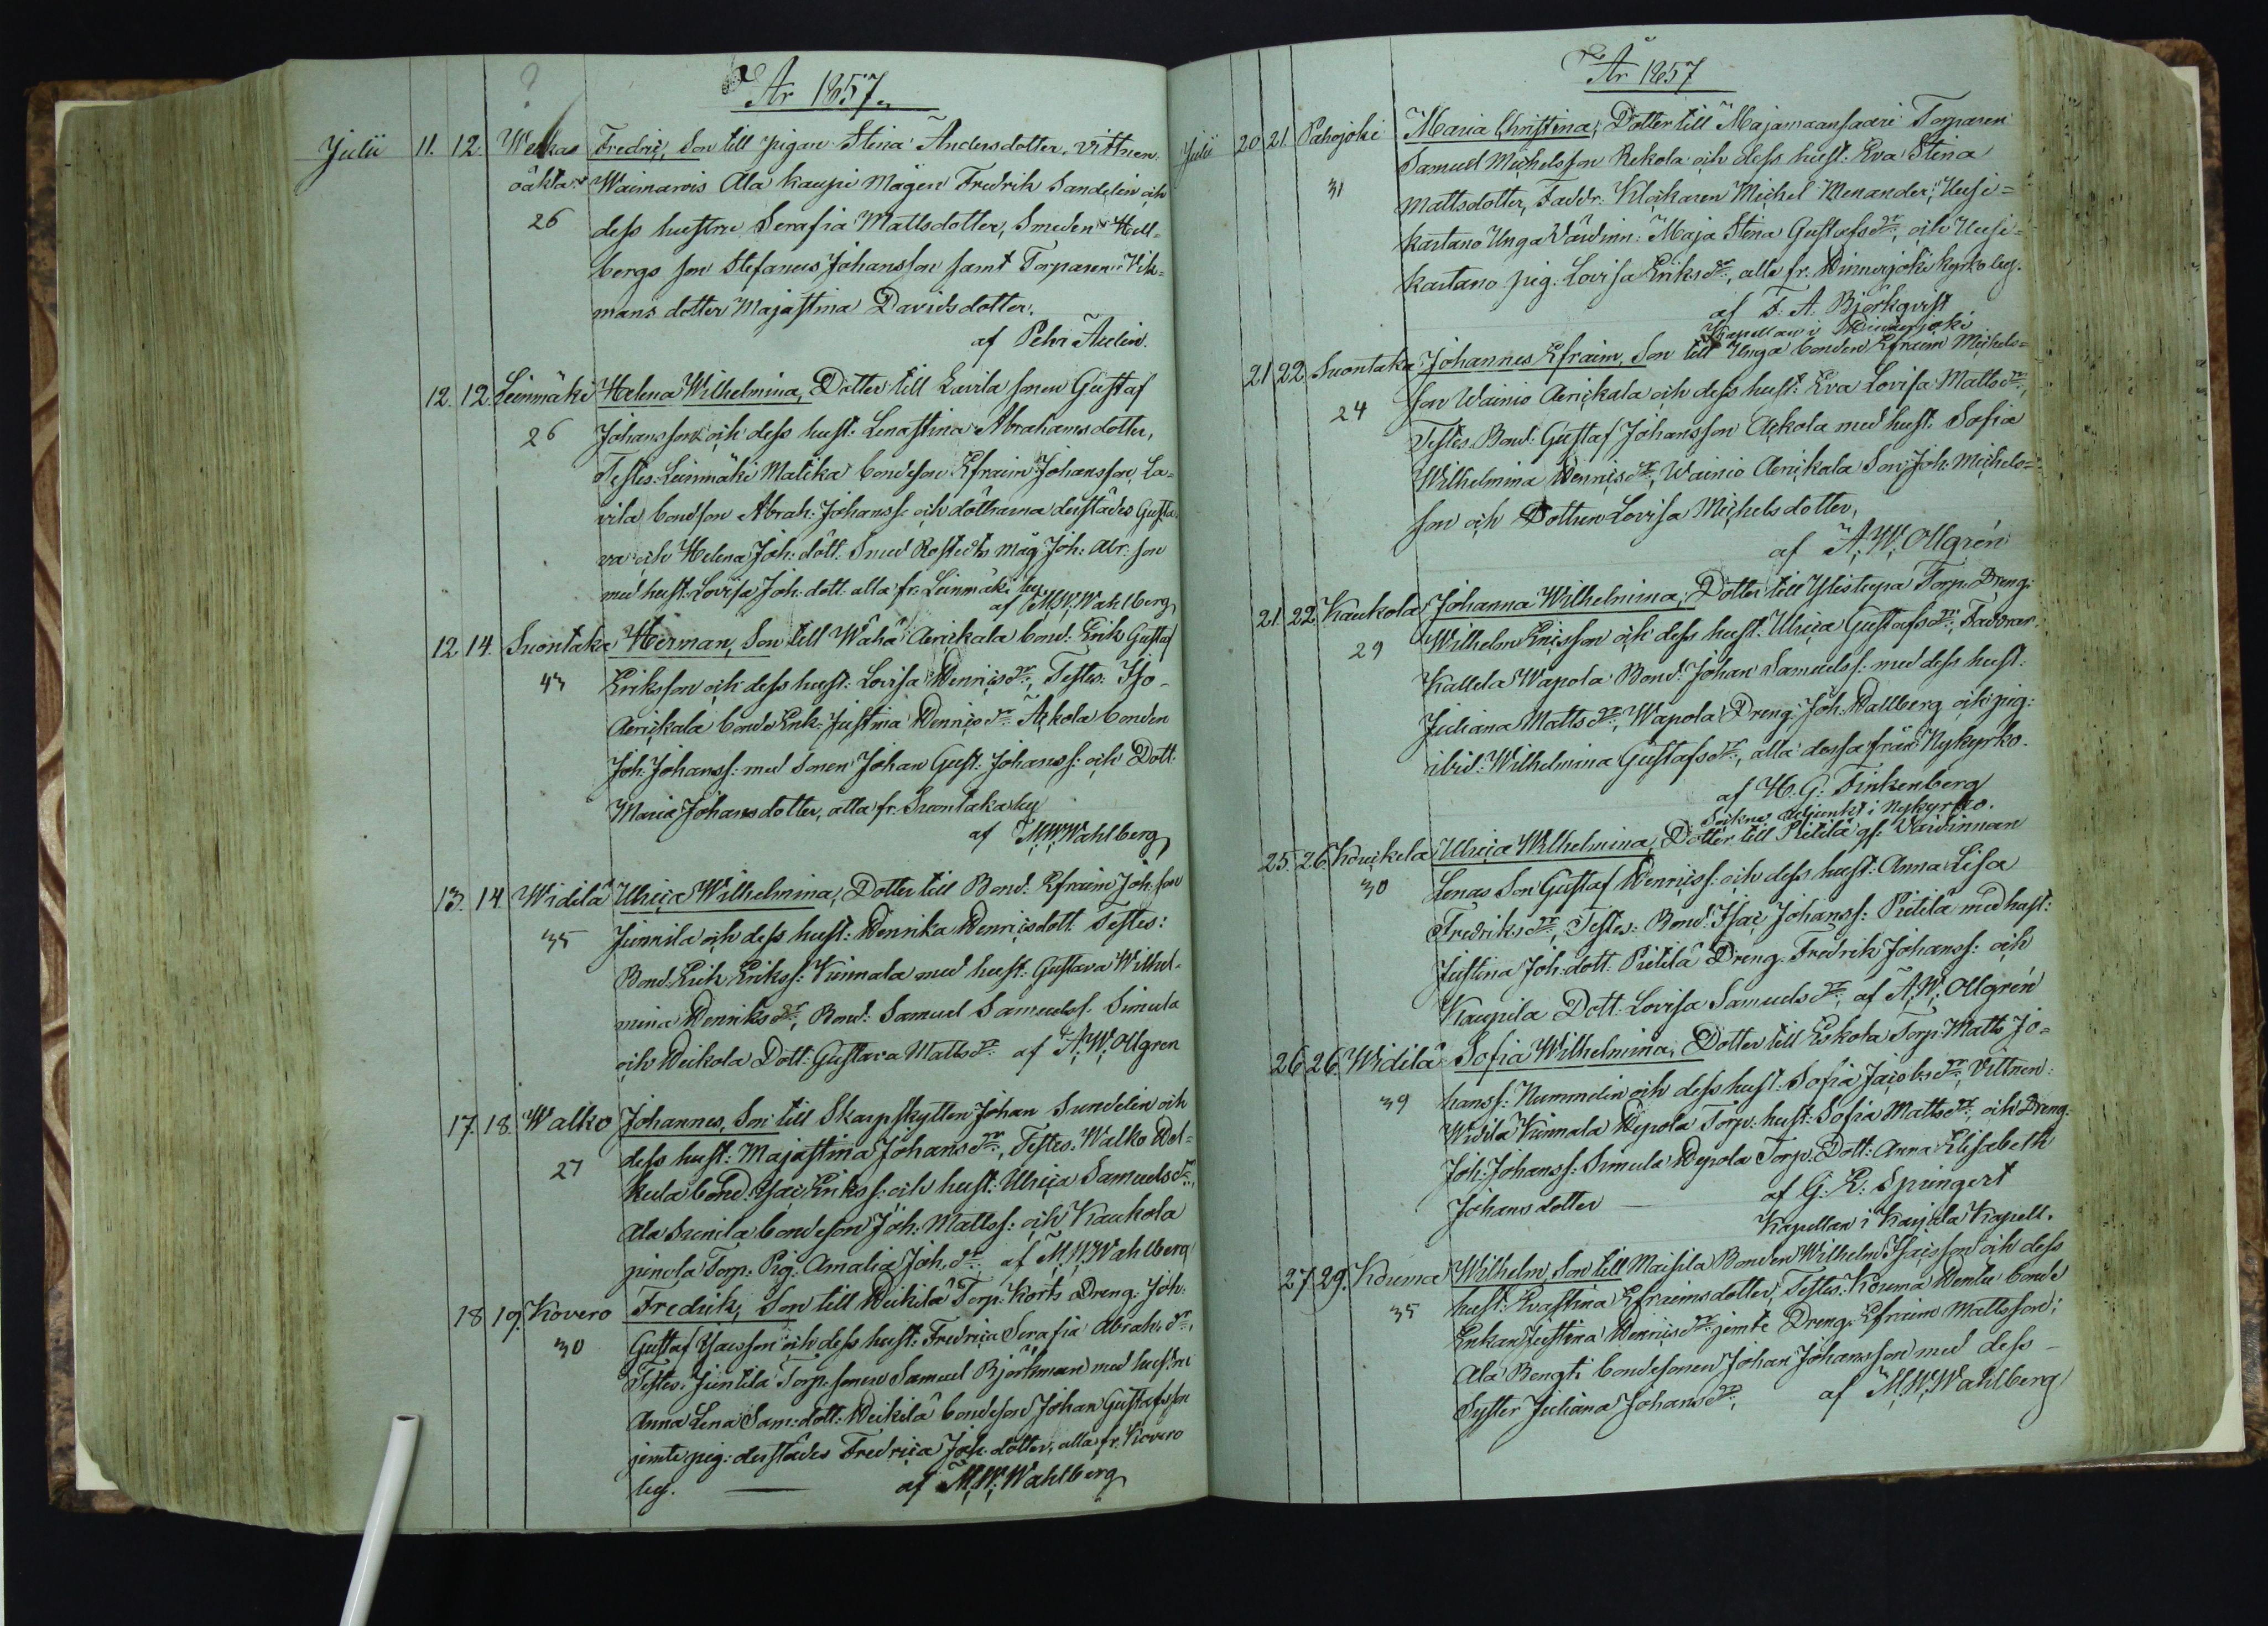 År 1857.
Julii 11. 12. Weckas Fredric, Son till pigan Stina Andersdotter. Vittnen:
oäkta Waimaris Ala Kaupi Mågen Fredrik Sandelin och
26 dess hustru Serafia Mattsdotter, Smeden Hell-
bergs son Stefanus Johansson samt Torparen Vik-
mans dotter Majastina Davidsdotter.
af Pehr Aulin.
12. 12. Leinmäki Helena Wilhelmina, Dotter till Lavila sonen Gustaf
26 Johansson och dess hust: Lenastina Abrahamsdotter,
Testes: Leinmäki Matika bondeson Efraim Johansson, La-
vila bondson Abrah. Johanss: och döttrarna derstädes Gusta-
va och Helena Joh: dött. Smed Rostedts måg Joh: Abr: son
med hust. Lovisa Joh. dott. alla fr. Leinmäki by.
af M.W. Wahlberg
12. 14. Suontaka Herman, Son till Wähä Aerickala bond: Erik Gustaf
43 Eriksson och dess hust: Lovisa Henricsdr, Testes: Iso-
Aerickala bonde Enk: Justina Henricsdr. Ackola bonden
Joh: Johanss: med sonen Johan Gust: Johanss: och Dott:
Maria Johansdotter, alla fr. Suontaka by
af M.W. Wahlberg
13. 14. Widilä Ulrica Wilhelmina, Dotter till Bond: Efraim Joh: son
35 Junnila och dess hust: Henrika Henricsdott: Testes:
Bond: Erik Erikss: Kinnala med hust: Gustava Wilhel-
mina Henriksdr, Bond: Samuel Samuelss: Simula
och Heikola Dott: Gustava Mattsdr. af A.W. Ollgren
17. 18. Walko Johannes, Son till Skarpskytten Johan Sundelin och
27 dess hust: Majastina Johansdr, Testes: Walko Hel-
kula bond: Isac Erikss: och hust: Ulrica Samuelsdr,
Ala Sunila bondeson Joh: Mattss: och Kaukola
pinola Torp: Pig: Amalia Joh. dr. af M.W. Wahlberg
18 19. Kovero Fredrik, Son till Heikilä Torp: Korts Dreng: Joh:
30 Gustaf Isacsson och dess hust: Fredrica Serafia Abrah. dr,
Testes: Juntila Torp. sonen Samuel Björkman med hustru
Anna Lena Sam: dott: Heikilä bondeson Johan Gustafsson
jemte pig: derstädes Fredrica Joh. dotter, alla fr. Kovero
by. af M.W. Wahlberg
År 1857
Julii 20 21. Pahojoki Maria Christina, Dotter till Majamaansaari Torparen
31 Samuel Michelsson Rekola och dess hust: Eva Stina
Mattsdotter, Faddr: Klockaren Michel Menander, Uusi-
kartano Unga Värdinn: Maja Stina Gustafsdr, och Uusi-
kartano pig: Lovisa Eriksdr, alla fr. Hinnerjoki kyrkoby.
af F. A. Björkqvist
Kapellan i Hinnerjoki
21 22. Suontaka Johannes Efraim, Son till Unga bonden Efraim Michels-
24 son Wainio Aerickala och dess hust: Eva Lovisa Mattsdr,
Testes: Bond: Gustaf Johansson Ackola med hust: Sofia
Wilhelmina Henricsdr, Wainio Aerickala Son Joh: Michels-
son och Dottren Lovisa Michelsdotter,
af A.W. Ollgrén
21. 22. Kaukola Johanna Wilhelmina, Dotter till Ylistupa Torp: Dreng:
29 Wilhelm Ericsson och dess hust: Ulrica Gustafsdr, Faddrar:
Kallela Wapola Bond: Johan Samuelss: med dess hust:
Juliana Mattsdr, Wapola Dreng: Joh: Hallberg och pig:
ibid: Wilhelmina Gustafsdr, alla dessa från Nykyrko.
af H. G. Finkenberg
Sockne Adjunkt i Nykyrko.
25 26. Kouckela Ulrica Wilhelmina, Dotter till Pietilä gf: Värdinnan
30 Lenas Son Gustaf Henricss: och dess hust: Anna Lisa
Fredriksdr, Testes: Bond: Isac Johanss: Pietilä med hust:
Justina Joh: dott. Pietilä Dreng: Fredrik Johanss: och
Kaupila Dott: Lovisa Samuelsdr, af A.W. Ollgrén
26 26. Widilä Sofia Wilhelmina, Dotter till Eskola Torp: Matts Jo-
39 hanss: Nummelin och dess hust: Sofia Jacobsdr, Vittnen:
Widilä Kinnala Hepola Torp: hust: Sofia Mattsdr, och Dreng:
Joh: Johanss: Simula Hepola Torp: Dott: Anna Elisabeth
Johansdotter af G. R. Springert
Kapellan i Karjala Kapell.
27 29. Kouma Wilhelm, Son till Maisila Bonden Wilhelm Isacsson och dess
35 hust: Evastina Efraimsdotter, Testes: Kouma Hemtu bonde
Enkan Justina Henricsdr jemte Dreng: Efraim Mattsson;
Ala Bengti bondesonen Johan Johansson med dess
Syster Juliana Johansdr, af M.W. Wahlberg